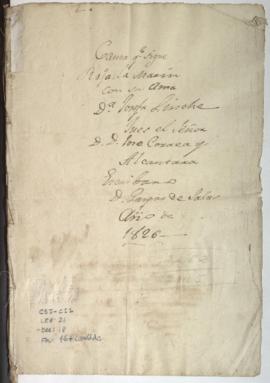 Causa q.e sigue
Rosalia Marin
con su Ama
D.a Josefa
Juez el Señor
D. D. Jose Correa y
Alcantara
Escribano
D. Gaspar de Salas
Año de
1826
CSJ-CIL
LEG 21